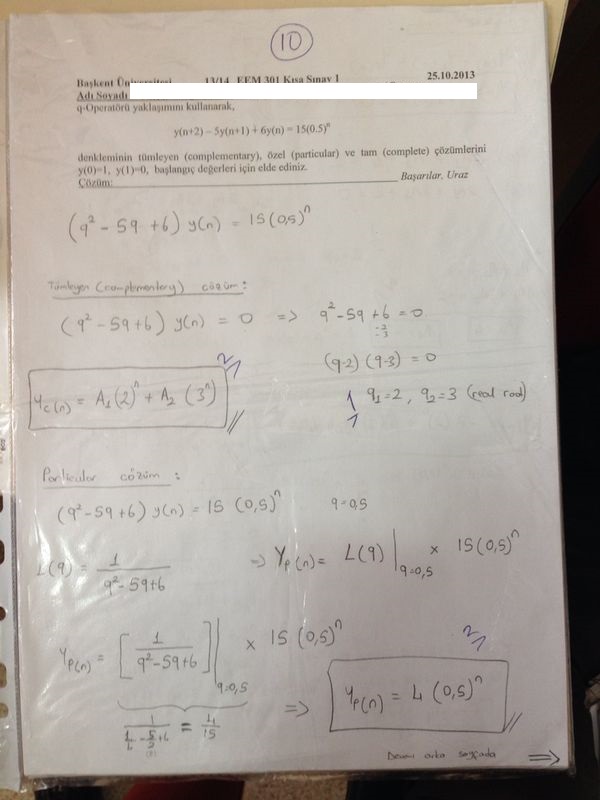 10
Başkent Üniversitesi 13/14 EEM 301 Kısa Sınav 1 25.10.2013
Adı Soyadı
q-Operatörü yaklaşımını kullanarak,
y(n+2) – 5y(n+1) + 6y(n) = 15(0.5)^n
denkleminin tümleyen (complementary), özel (particular) ve tam (complete) çözümlerini
y(0)=1, y(1)=0, başlangıç değerleri için elde ediniz.
Çözüm: Başarılar, Uraz
(q² - 5q + 6) y(n) = 15 (0,5)^n
Tümleyen (complementery) çözüm:
(q² - 5q + 6) y(n) = 0 => q² - 5q + 6 = 0
-2
-3
(q-2) (q-3) = 0
q1 = 2, q2 = 3 (real root)
yc(n) = A1 (2)^n + A2 (3^n)
Particular çözüm:
(q² - 5q + 6) y(n) = 15 (0,5)^n q = 0,5
L(q) = 1/(q² - 5q + 6) => Yp(n) = L(q) |q=0,5 × 15 (0,5)^n
Yp(n) = [1/(q² - 5q + 6)] |q=0,5 × 15 (0,5)^n
1/(1/4 - 5/2 + 6) = 4/15 => yp(n) = 4 (0,5)^n
Devamı arka sayfada =>